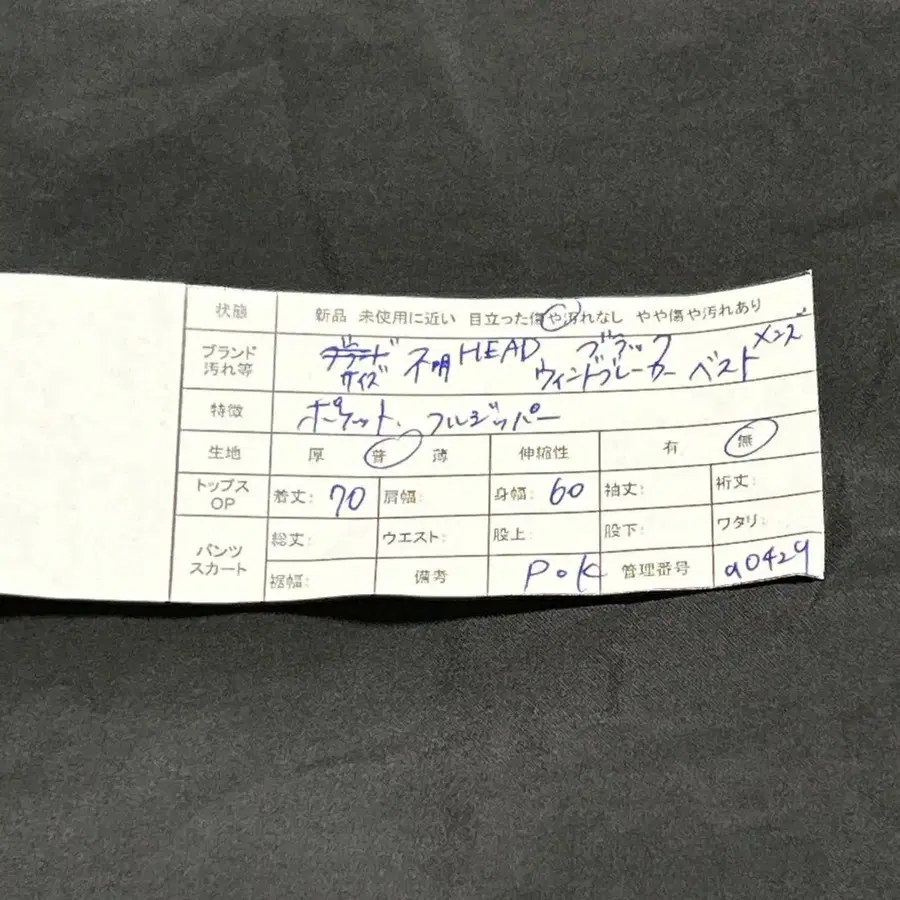 状態 新品 未使用に近い 目立った傷や汚れなし やや傷や汚れあり
ブランド 汚れ等 ブランド サイズ 不明 HEAD ブラック ウィンドブレーカー ベスト メンズ
特徴 ポケット、フルジッパー
生地 厚 普 薄 伸縮性 有 無
トップス OP 着丈: 70 肩幅: 身幅: 60 袖丈: 裄丈:
パンツ スカート 総丈: ウエスト: 股上: 股下: ワタリ:
裾幅: 備考 PoK 管理番号 a0429